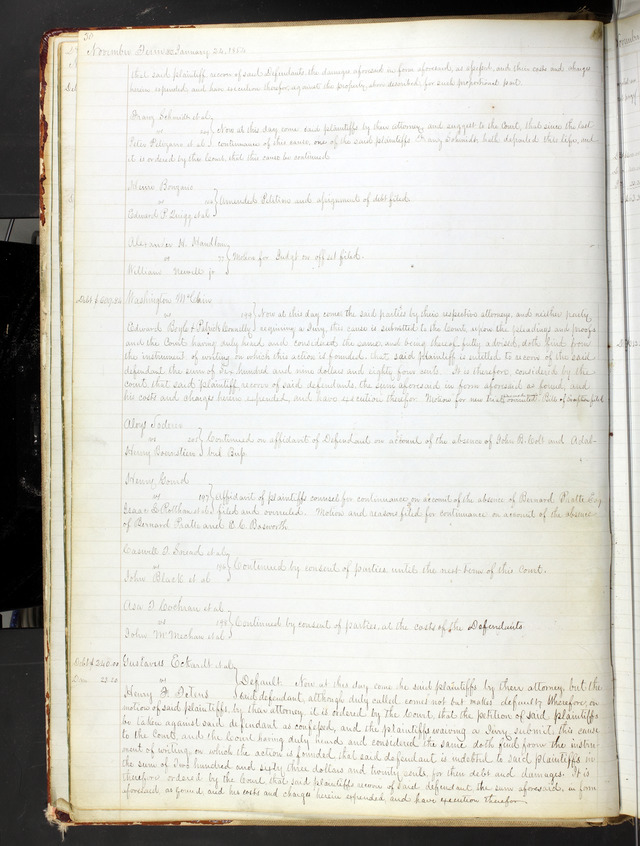 30
November Term 1852 January 24, 1853
that said plaintiff recover of said Defendants the damages aforesaid in form aforesaid, as assessed, and their costs and charges
herein expended, and have execution therefor, against the property, above described, for such proportionate part.
Franz Schmidt et al
vs Now at this day come said plaintiffs by their attorney and suggest to the Court, that since the last
Peter et al continuance of this cause, one of the said plaintiffs Franz Schmidt, hath departed this life, and
it is ordered by this Court, that this cause be continued
Bongane
vs Amended Petition and assignment of debt filed.
Edward P. Quigg et al
Alexander H. Handlan
vs 77 Motion for Judgt on offset filed.
William Nevill jr
Debt $609.84 Washington McClain
vs 199 Now at this day comes the said parties by their respective attorneys, and neither party
Edward Bogle & Patrick Connelly requiring a Jury, this cause is submitted to the Court upon the pleadings and proofs
and the Court having duly heard and considered the same, and being thereof fully advised, doth find from
the instrument of writing on which this action is founded, that said plaintiff is entitled to recover of the said
defendant the sum of Six hundred and nine dollars and eighty four cents. It is therefore considered by the
Court, that said plaintiff recover of said defendants the sum aforesaid in form aforesaid as found, and
his costs and charges herein expended, and have execution therefor. Motion for new trial overruled. Bill of exceptions filed
Aloys
vs 205 Continued on affidavit of Defendant on account of the absence of John B. Col and Adal-
Henry Boernstein bert Bup.
Henry Gourd
vs 197 Affidavit of plaintiffs counsel for continuance, on account of the absence of Bernard Pratte Esq
Isaac S. et al filed and overruled. Motion and reasons filed for continuance on account of the absence
of Bernard Pratte and E. C. Bosworth
Caswell O. et al
vs 198 Continued by consent of parties until the next term of this Court.
John Black et al
Asa D. Cochran et al
vs Continued by consent of parties at the costs of the Defendants
John McMechan et al
Debt $240.00 Gustavus Eckardt et al
Dam 23.20 vs Default. Now at this day come the said plaintiffs by their attorney, but the
Henry P. Peters said defendant, although duly called comes not but makes default; Wherefore, on
motion of said plaintiffs by their attorney it is ordered by the Court, that the petition of said plaintiffs
be taken against said defendant as confessed, and the plaintiffs waiving a Jury submit this cause
to the Court, and the Court having duly heard and considered the same doth find from the instru-
ment of writing on which the action is founded that said defendant is indebted to said plaintiffs in
the sum of Two hundred and sixty three dollars and twenty cents, for their debt and damages. It is
therefore ordered by the Court that said plaintiffs recover of said defendant the sum aforesaid, in form
aforesaid, as found and his costs and charges herein expended, and have execution therefor